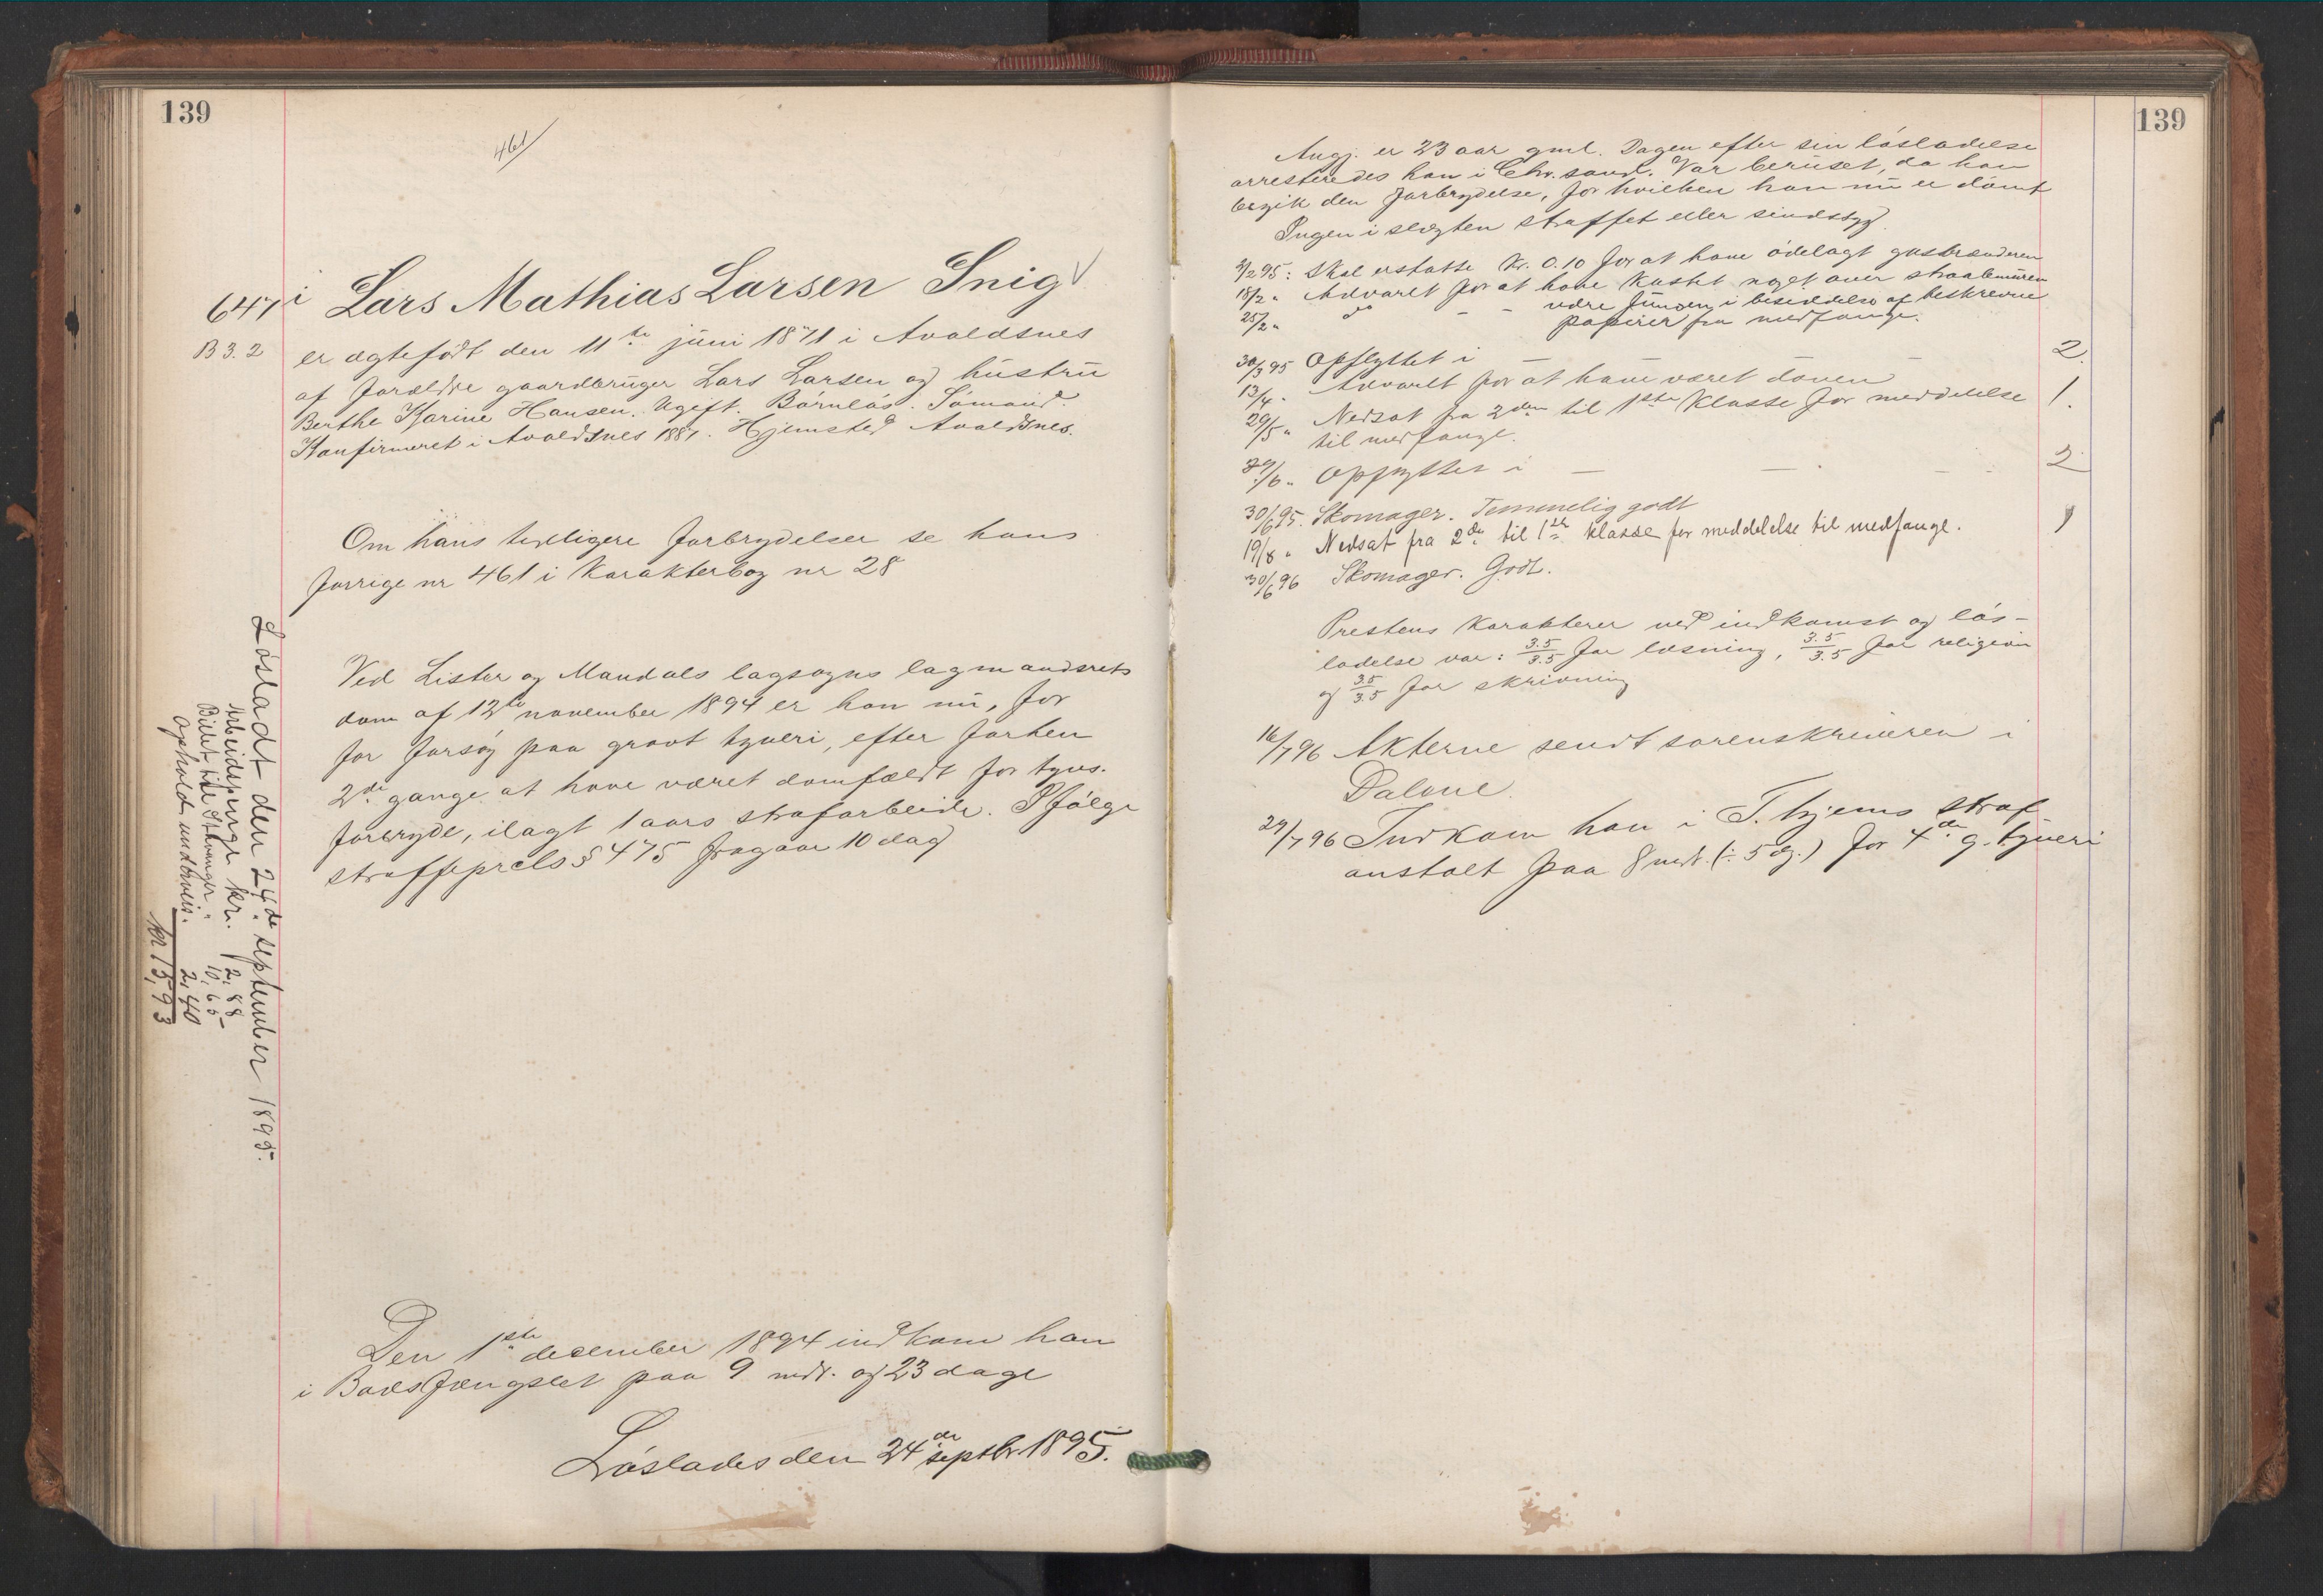 139
461
647 i Lars Mathias Larsen Snig
B 3. 2
er ægtefödt den 11te juni 1871 i Avaldsnes
af forældre gaardbruger Lars Larsen og hustru
Berthe Karine Hansen. Ugift. Börnlös. Sömand.
Konfirmeret i Avaldsnes 1887. Hjemsted Avaldsnes.
Om hans tidligere forbrydelser se hans
forrige nr 461 i Karakterbog nr 28
Ved Lister og Mandals lagsogns lagmandsrets
dom af 12te november 1894 er han nu, for
for forsög paa grovt tyveri, efter forhen
2de gange at have været domfældt for tyvs-
forbryde, ilagt 1 aars strafarbeide. Ifölge
straffeprcls § 475 fragaar 10 dag
Lösladt den 24de september 1895.
Arbeidspenge kr. 2,88
Billet til Stavanger " 10,65
Ophold underveis. 2,40
kr 15,93
Den 1ste december 1894 indkom han
i Bodsfængslet paa 9 mdr. og 23 dage
Löslades den 24de septbr. 1895.
139
Angj. er 23 aar gml. Dagen efter sin lösladelse
arresteredes han i Chr.sand. Var beruset, da han
begik den forbrydelse, for hvilken han nu er dömt
Ingen i slægten straffet eller sindssyg
2/2 95: Skal erstatte kr. 0.10 for at have ödelagt gasbrænderen
18/2 " Advaret for at have kastet noget over straalemuren
25/2 " do - - være funden i besiddelse af beskrevne
papirer fra medfange.
30/3 95 Opflyttet i — — — 2.
13/4 " Advaret for at have været doven
29/5 " Nedsat fra 2den til 1ste Klasse for meddelelse 1.
til medfange.
/6 " Opflyttet i — — — 2
30/6 95. Skomager. Temmelig godt
19/8 " Nedsat fra 2de til 1ste klasse for meddelelse til medfange. 1
30/6 96 Skomager. Godt.
Prestens Karakterer ved indkomst og lös-
ladelse var: 3.5/3.5 for læsning, 3.5/3.5 for religion
og 3.5/3.5 for skrivning
16/7 96 Akterne sendt sorenskriveren i
Dalene.
29/7 96 Indkom han i T.hjems straf
anstalt paa 8 mdr. (÷ 5 dg.) for 4de g. tyveri